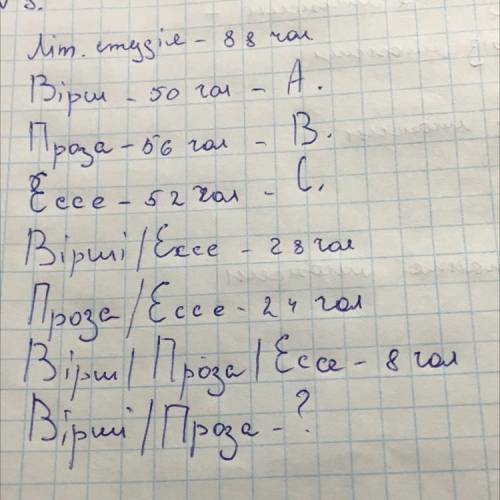 3.
Літ. студія - 88 чол
Вірш - 50 чол - А.
Проза - 56 чол - В.
Ессе - 52 чол - С.
Вірші/Ессе - 28 чол
Проза/Ессе - 24 чол
Вірш/Проза/Ессе - 8 чол
Вірші/Проза - ?